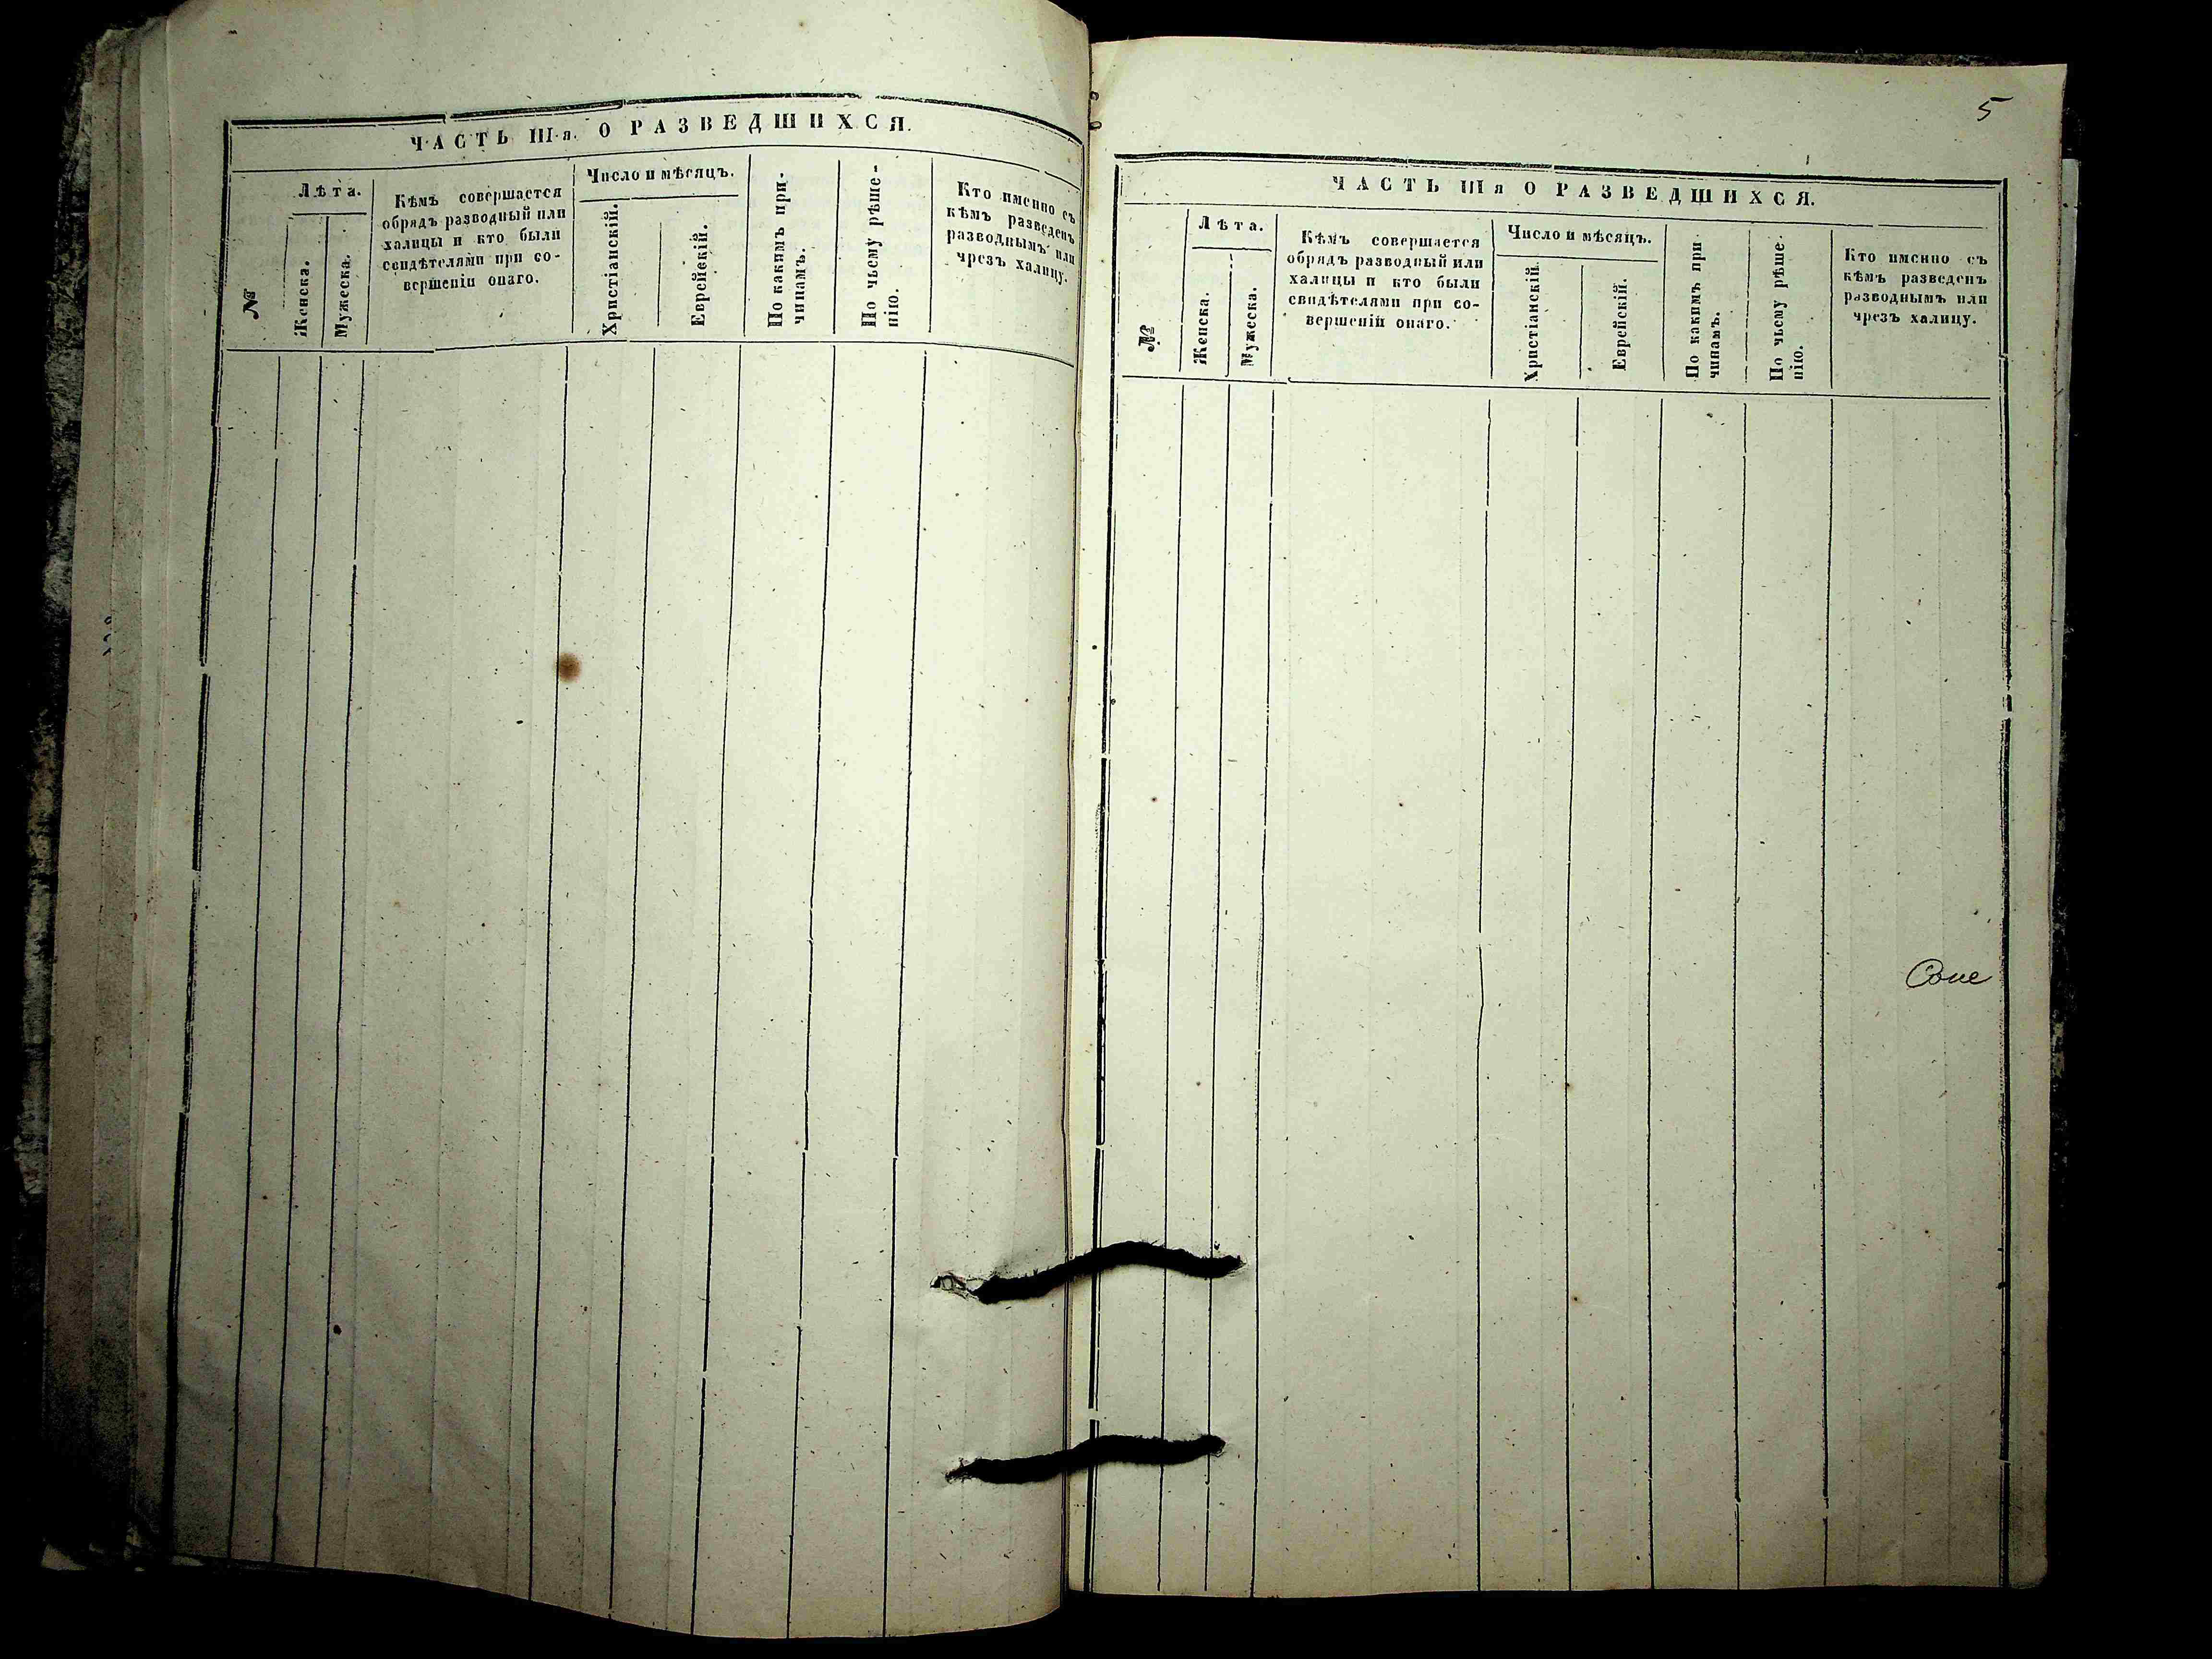 ЧАСТЬ III-я. О РАЗВЕДШИХСЯ.
№
Лѣта.
Женска.
Мужеска.
Кѣмъ совершается
обрядъ разводный или
халицы и кто были
свидѣтелями при со-
вершеніи онаго.
Число и мѣсяцъ.
Христіанскій.
Еврейскій.
По какимъ при-
чинамъ.
По чьему рѣше-
нію.
Кто именно съ
кѣмъ разведенъ
разводнымъ или
чрезъ халицу.
5
ЧАСТЬ III я О РАЗВЕДШИХСЯ.
№
Лѣта.
Женска.
Мужеска.
Кѣмъ совершается
обрядъ разводный или
халицы и кто были
свидѣтелями при со-
вершеніи онаго.
Число и мѣсяцъ.
Христіанскій.
Еврейскій.
По какимъ при
чинамъ.
По чьему рѣше-
нію.
Кто именно съ
кѣмъ разведенъ
разводнымъ или
чрезъ халицу.